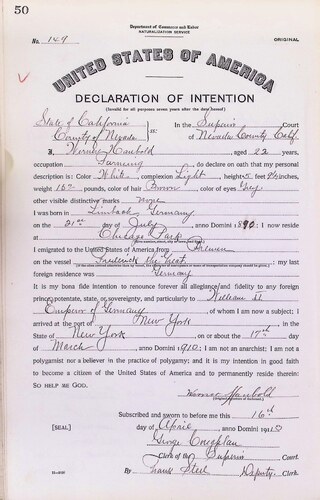 50
Department of Commerce and Labor
NATURALIZATION SERVICE
No. 149
ORIGINAL
UNITED STATES OF AMERICA
DECLARATION OF INTENTION
(Invalid for all purposes seven years after the date hereof)
State of California
County of Nevada
ss:
In the Superior Court
of Nevada County Calif.
I, Werner Haubold, aged 22 years,
occupation Farming, do declare on oath that my personal
description is: Color White, complexion Light, height 5 feet inches,
weight pounds, color of hair Brown, color of eyes Grey
other visible distinctive marks none
I was born in Limbach, Germany
on the 21st day of July, anno Domini 1; I now reside
at Chicago Park
I emigrated to the United States of America from Bremen
on the vessel Frederick the Great; my last
foreign residence was Germany
It is my bona fide intention to renounce forever all allegiance and fidelity to any foreign
prince, potentate, state, or sovereignty, and particularly to William II
Emperor of Germany, of whom I am now a subject; I
arrived at the port of New York, in the
State of New York on or about the 17th day
of March, anno Domini 1910; I am not an anarchist; I am not a
polygamist nor a believer in the practice of polygamy; and it is my intention in good faith
to become a citizen of the United States of America and to permanently reside therein:
SO HELP ME GOD.
Werner Haubold
Subscribed and sworn to before me this 16th
[SEAL] day of April, anno Domini 1910
George
Clerk of Superior Court.
By Frank Steel Deputy Clerk.